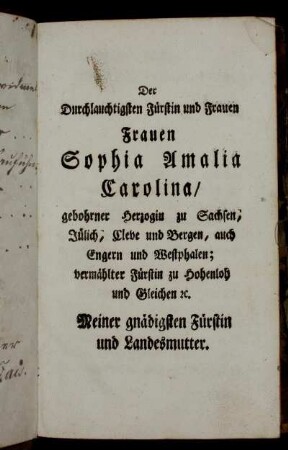 Der
Durchlauchtigsten Fürstin und Frauen
Frauen
Sophia Amalia
Carolina/
gebohrner Herzogin zu Sachsen,
Jülich, Cleve und Bergen, auch
Engern und Westphalen;
vermählter Fürstin zu Hohenloh
und Gleichen ꝛc.
Meiner gnädigsten Fürstin
und Landesmutter.